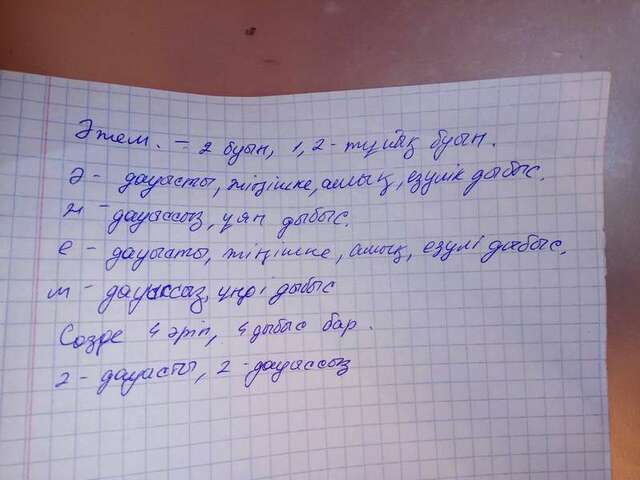 Әжем. - 2 буын, 1, 2 - тұйық буын.
Ә - дауысты, жіңішке, ашық, езулік дыбыс.
ж - дауассыз, ұян дыбыс.
е - дауысты, жіңішке, ашық, езулі дыбыс.
м - дауассыз, үнді дыбыс
Сөзде 4 әріп, 4 дыбыс бар.
2 - дауасты, 2 - дауассыз